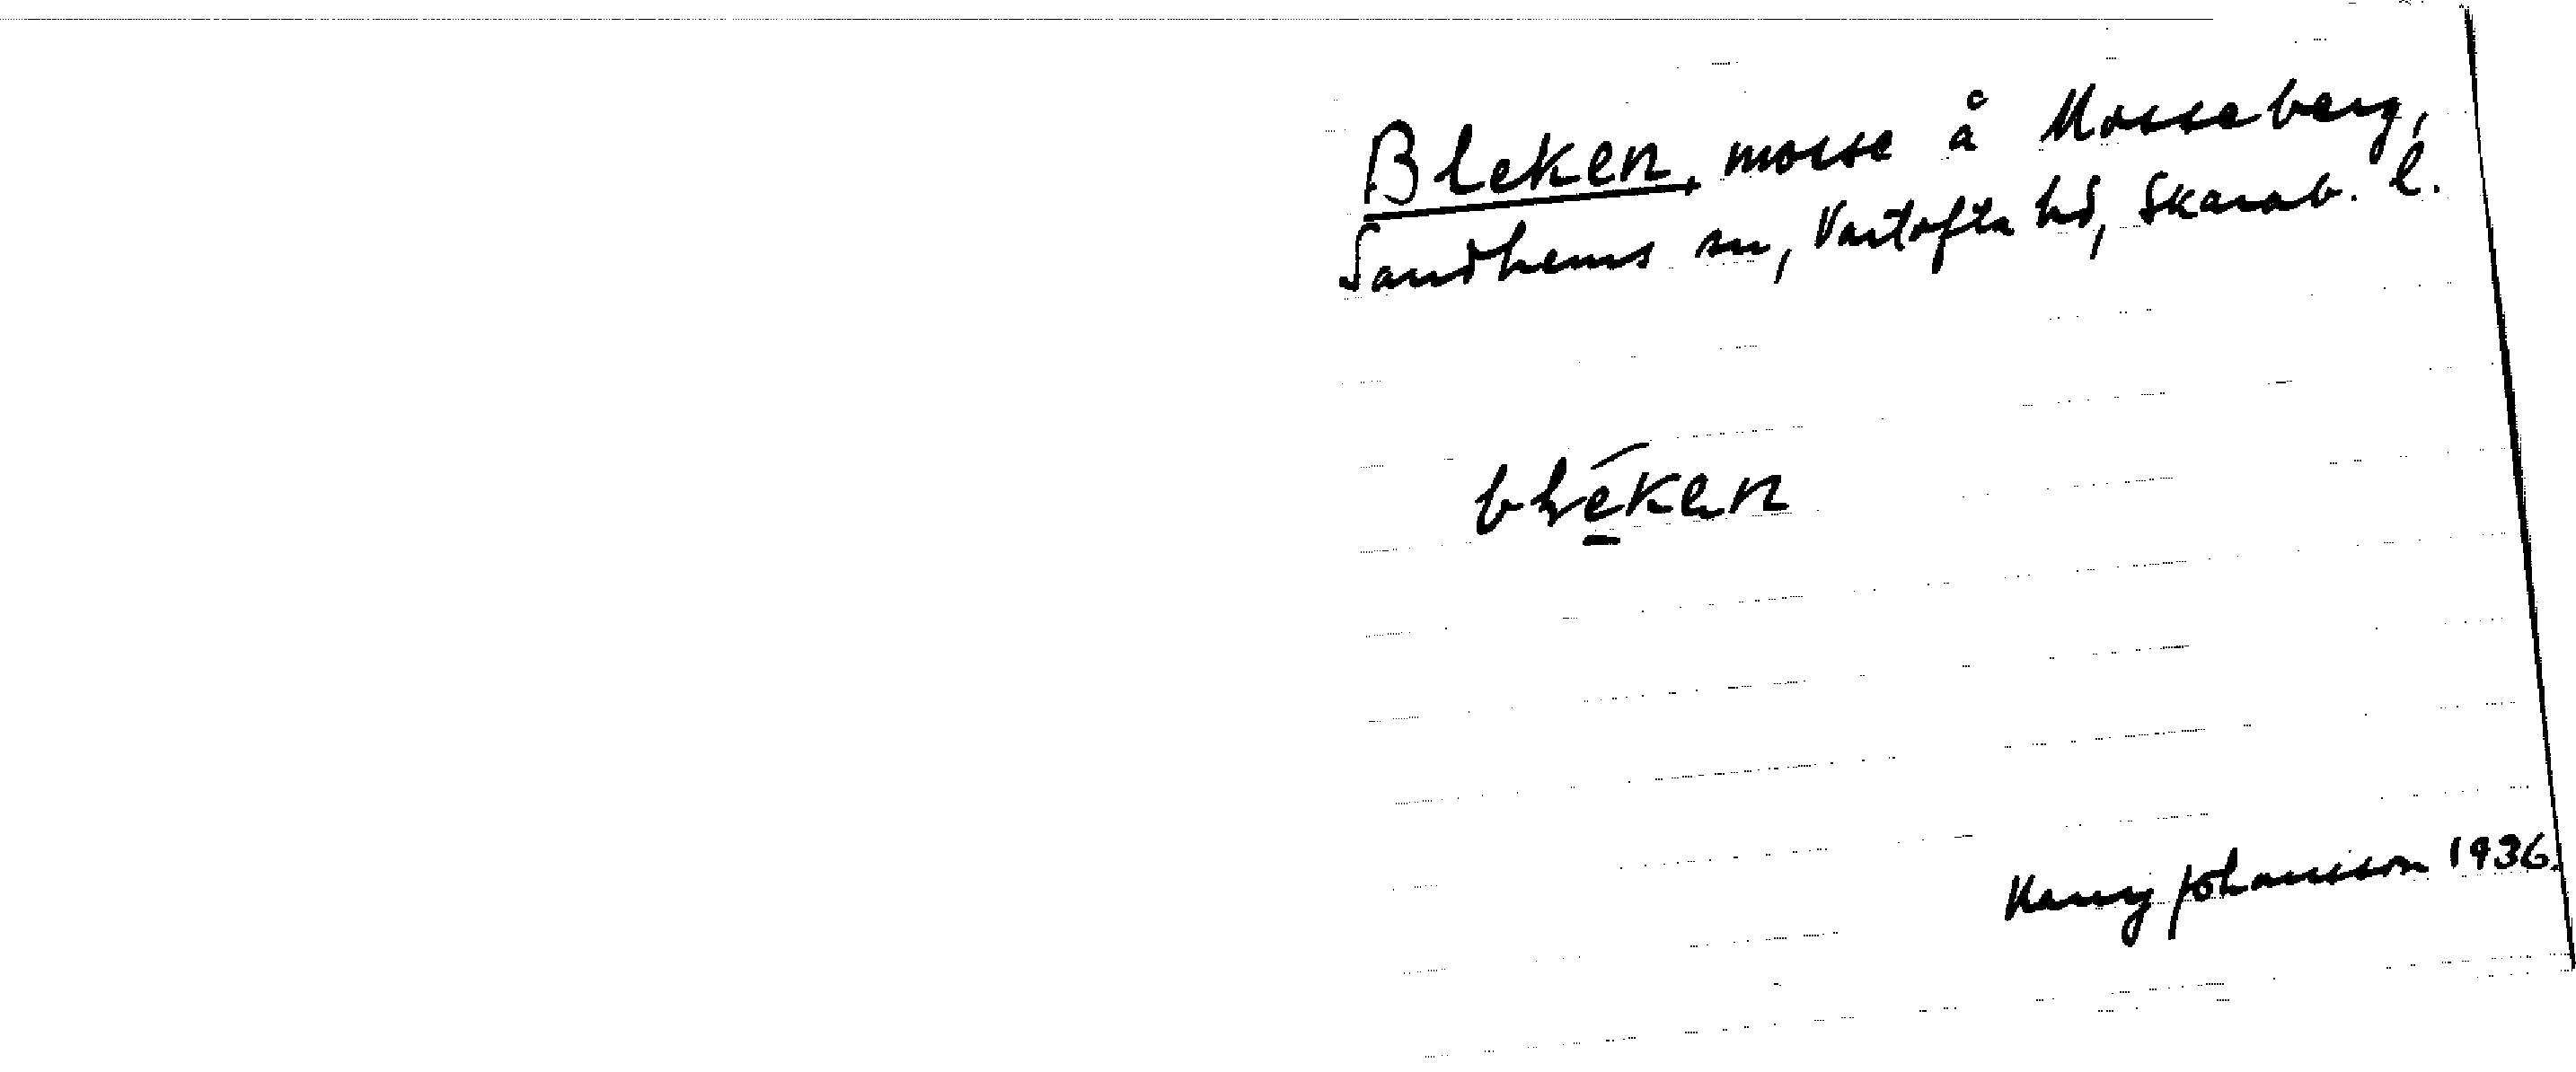 Bleken, mosse å Mosseberg,
Sandhems sn, Vartofta hd, Skarab. l.
bléken
Harry Johansson 1936.